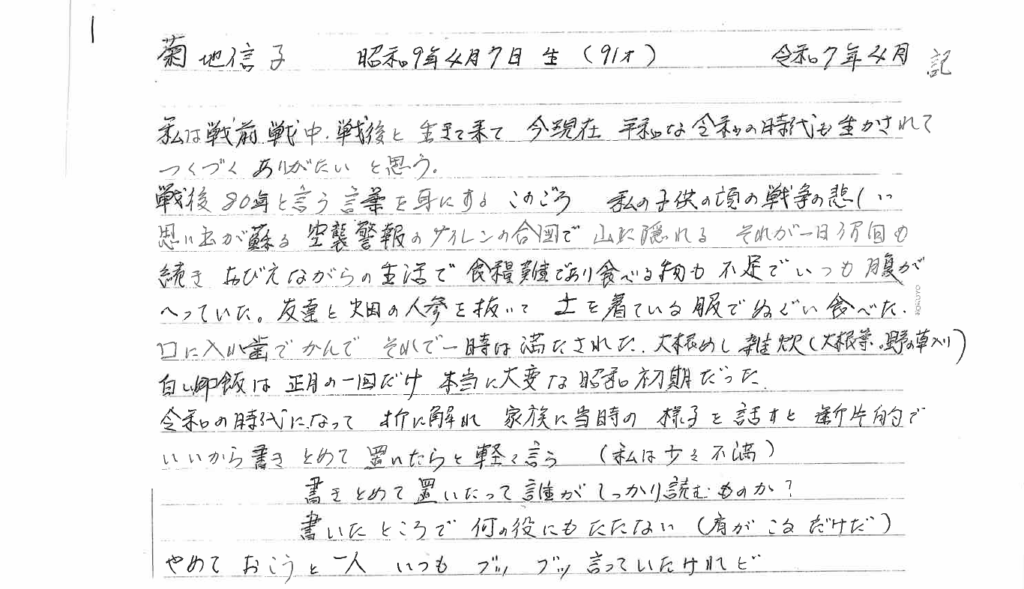 1
菊地信子 昭和9年4月7日生(91才) 令和7年4月 記
私は戦前 戦中、戦後と 生きて来て 今現在 平和な令和の時代も生かされて
つくづく ありがたい と思う。
戦後80年と言う言葉を耳にする このごろ 私の子供の頃の戦争の悲しい
思い出が蘇る 空襲警報のサイレンの合図で 山に隠れる それが一日何回も
続き おびえながらの生活で 食糧難であり食べる物も 不足でいつも腹が
へっていた。友達と畑の人参を抜いて 土を着ている服でぬぐい食べた、
口に入れ歯でかんで それで一時は満たされた、大根めし 雑炊(大根葉、野草入り)
白い御飯は 正月の一回だけ 本当に大変な昭和初期だった
令和の時代になって 折に触れ 家族に当時の 様子を話すと 断片的で
いいから書きとめて 置いたらと軽く言う (私は少々不満)
書きとめて置いたって誰がしっかり読むものか?
書いたところで 何の役にもたたない(肩がこるだけだ)
やめて おこうと 一人 いつも ブツ ブツ 言っていたけれど